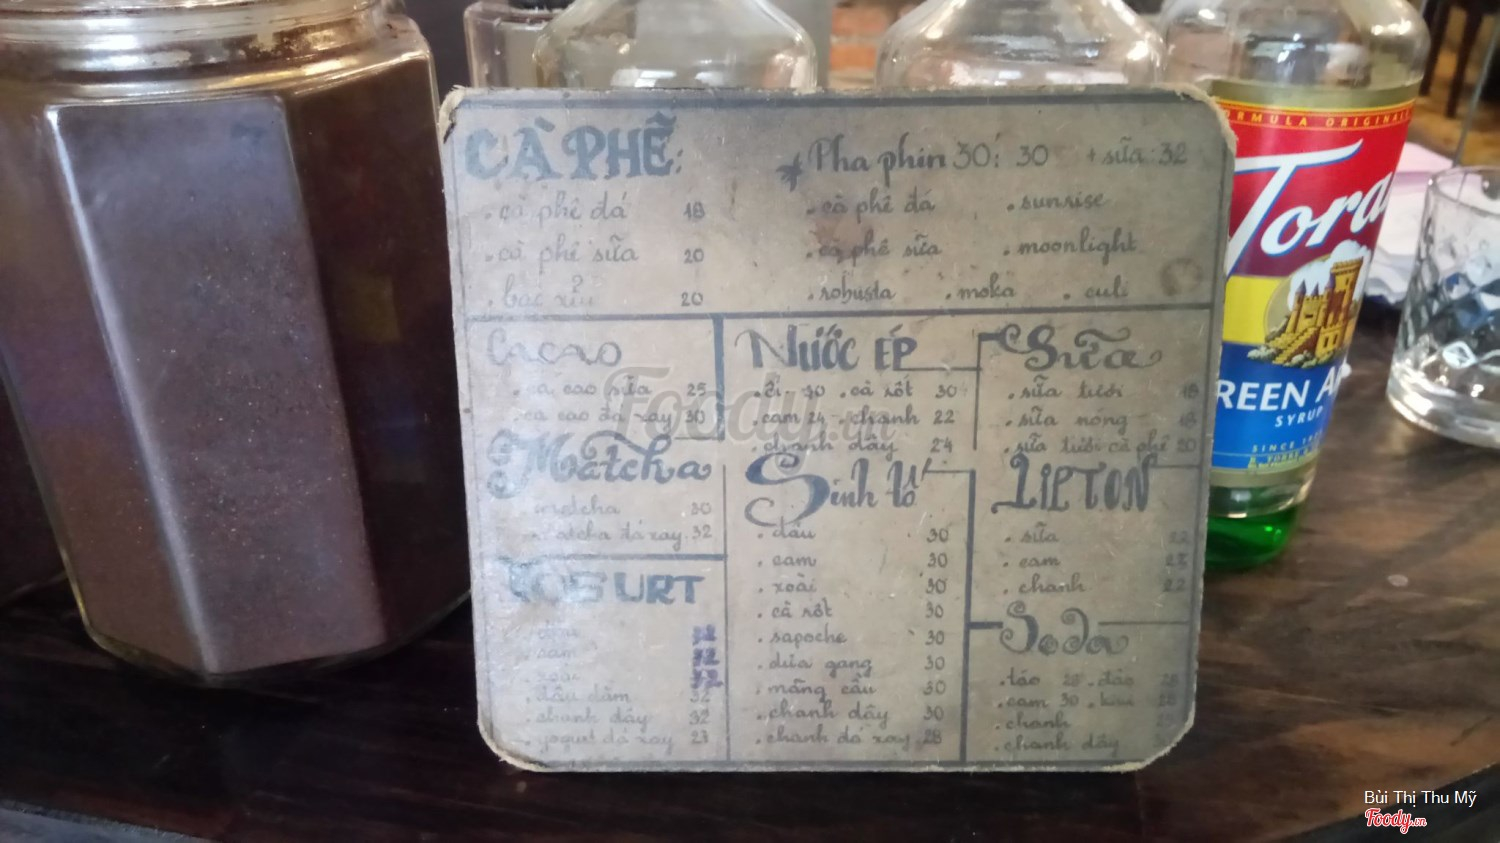 CÀ PHÊ:
. cà phê đá 18
. cà phê sữa 20
. bạc xỉu 20
* Pha phin 30: 30 + sữa: 32
. cà phê đá . sunrise
. cà phê sữa . moonlight
. robusta . moka . culi
Cacao
. ca cao sữa 25
. ca cao đá xay 30
Matcha
matcha 30
matcha đá xay 32
YOGURT
. cam
. xoài
. dâu dằm 32
. chanh dây 32
. yogurt đá xay 23
NƯỚC ÉP
. ổi 30 . cà rốt 30
. cam 24 . chanh 22
. chanh dây 24
Sinh tố
. dâu 30
. cam 30
. xoài 30
. cà rốt 30
. sapoche 30
. dưa gang 30
. mãng cầu 30
. chanh dây 30
. chanh đá xay 28
Sữa
. sữa tươi 18
. sữa nóng 18
. sữa tươi cà phê 20
LIPTON
. sữa 22
. cam 23
. chanh 22
Soda
. táo 28 . đào 28
. cam 30
. chanh
. chanh dây
FORMULA ORIGINALE
Tora
GREEN A
SYRUP
SINCE
Foody.vn
Bùi Thị Thu Mỹ
Foody.vn